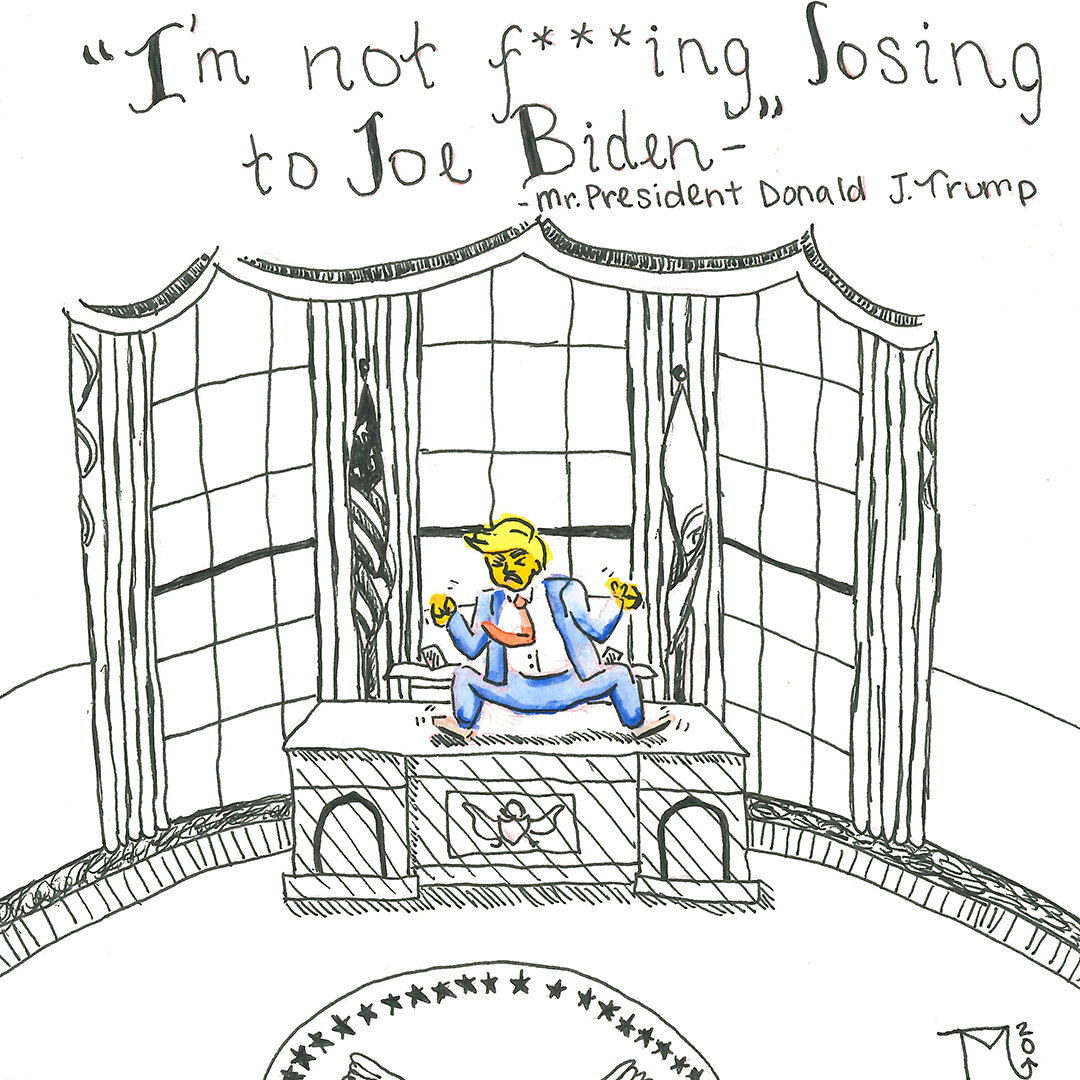 “I'm not f***ing„ losing
to Joe Biden-
-mr. President Donald J. Trump